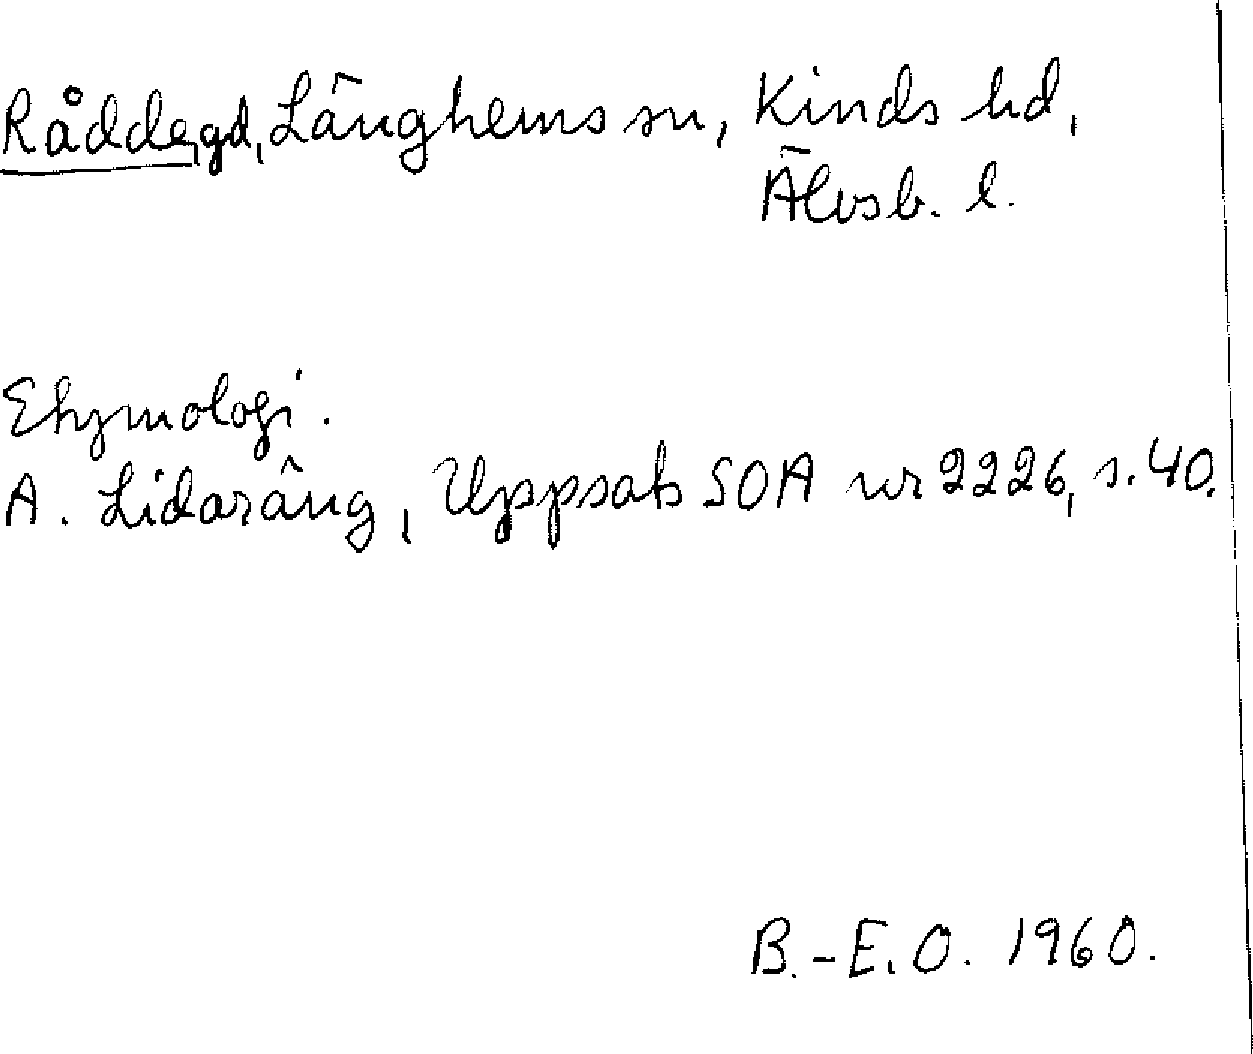 Rådde, gd, Länghems sn, Kinds hd,
Älvsb. l.
Etymologi.
A. Lidaräng, Uppsats SOA nr 2226, s. 40.
B.-E. O. 1960.